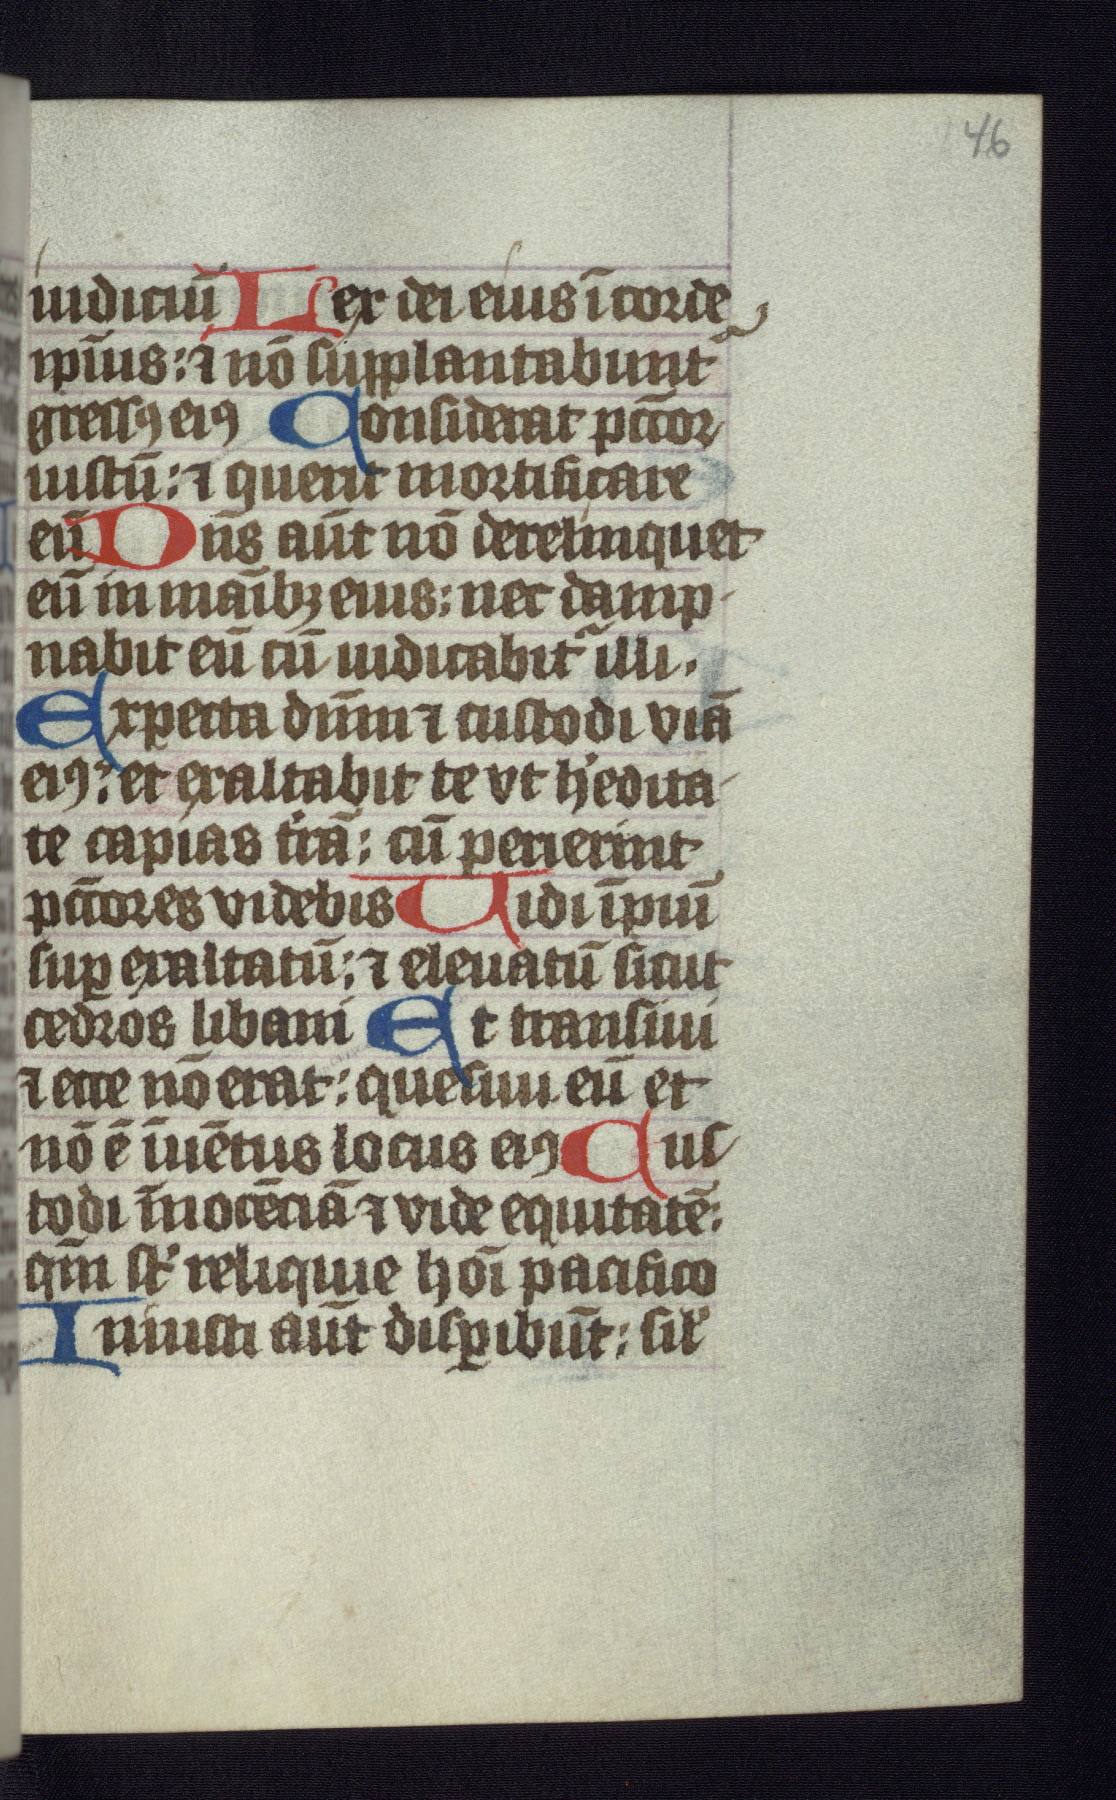 46
iudiciū Lex dei eius ī corde
ip̄ius: ⁊ nō supplantabunt᷑
gressꝯ eiꝯ Considerat pctō̄r
iustū: ⁊ querit mortificare
eū Dn̄s aūt nō derelinquet
eū in manībꝫ eius: nec damp-
nabit eū cū iudicabit᷑ illi.
Expecta dn̄m ⁊ custodi viā
eiꝯ: et exaltabit te vt h'edita-
te capias t'rā: cū perierint
pctō̄res videbis Uidi īpiū
suꝑ exaltatū: ⁊ eleuatū sicut
cedros libani Et transiui
⁊ ecce nō erat: quesiui eū et
nō ē īuētus locus eiꝯ Cus
todi īnocēciā ⁊ vide equitatē:
qm̄ st' reliquie hoī pacifico
Iniusti aūt disꝑibūt: sil'